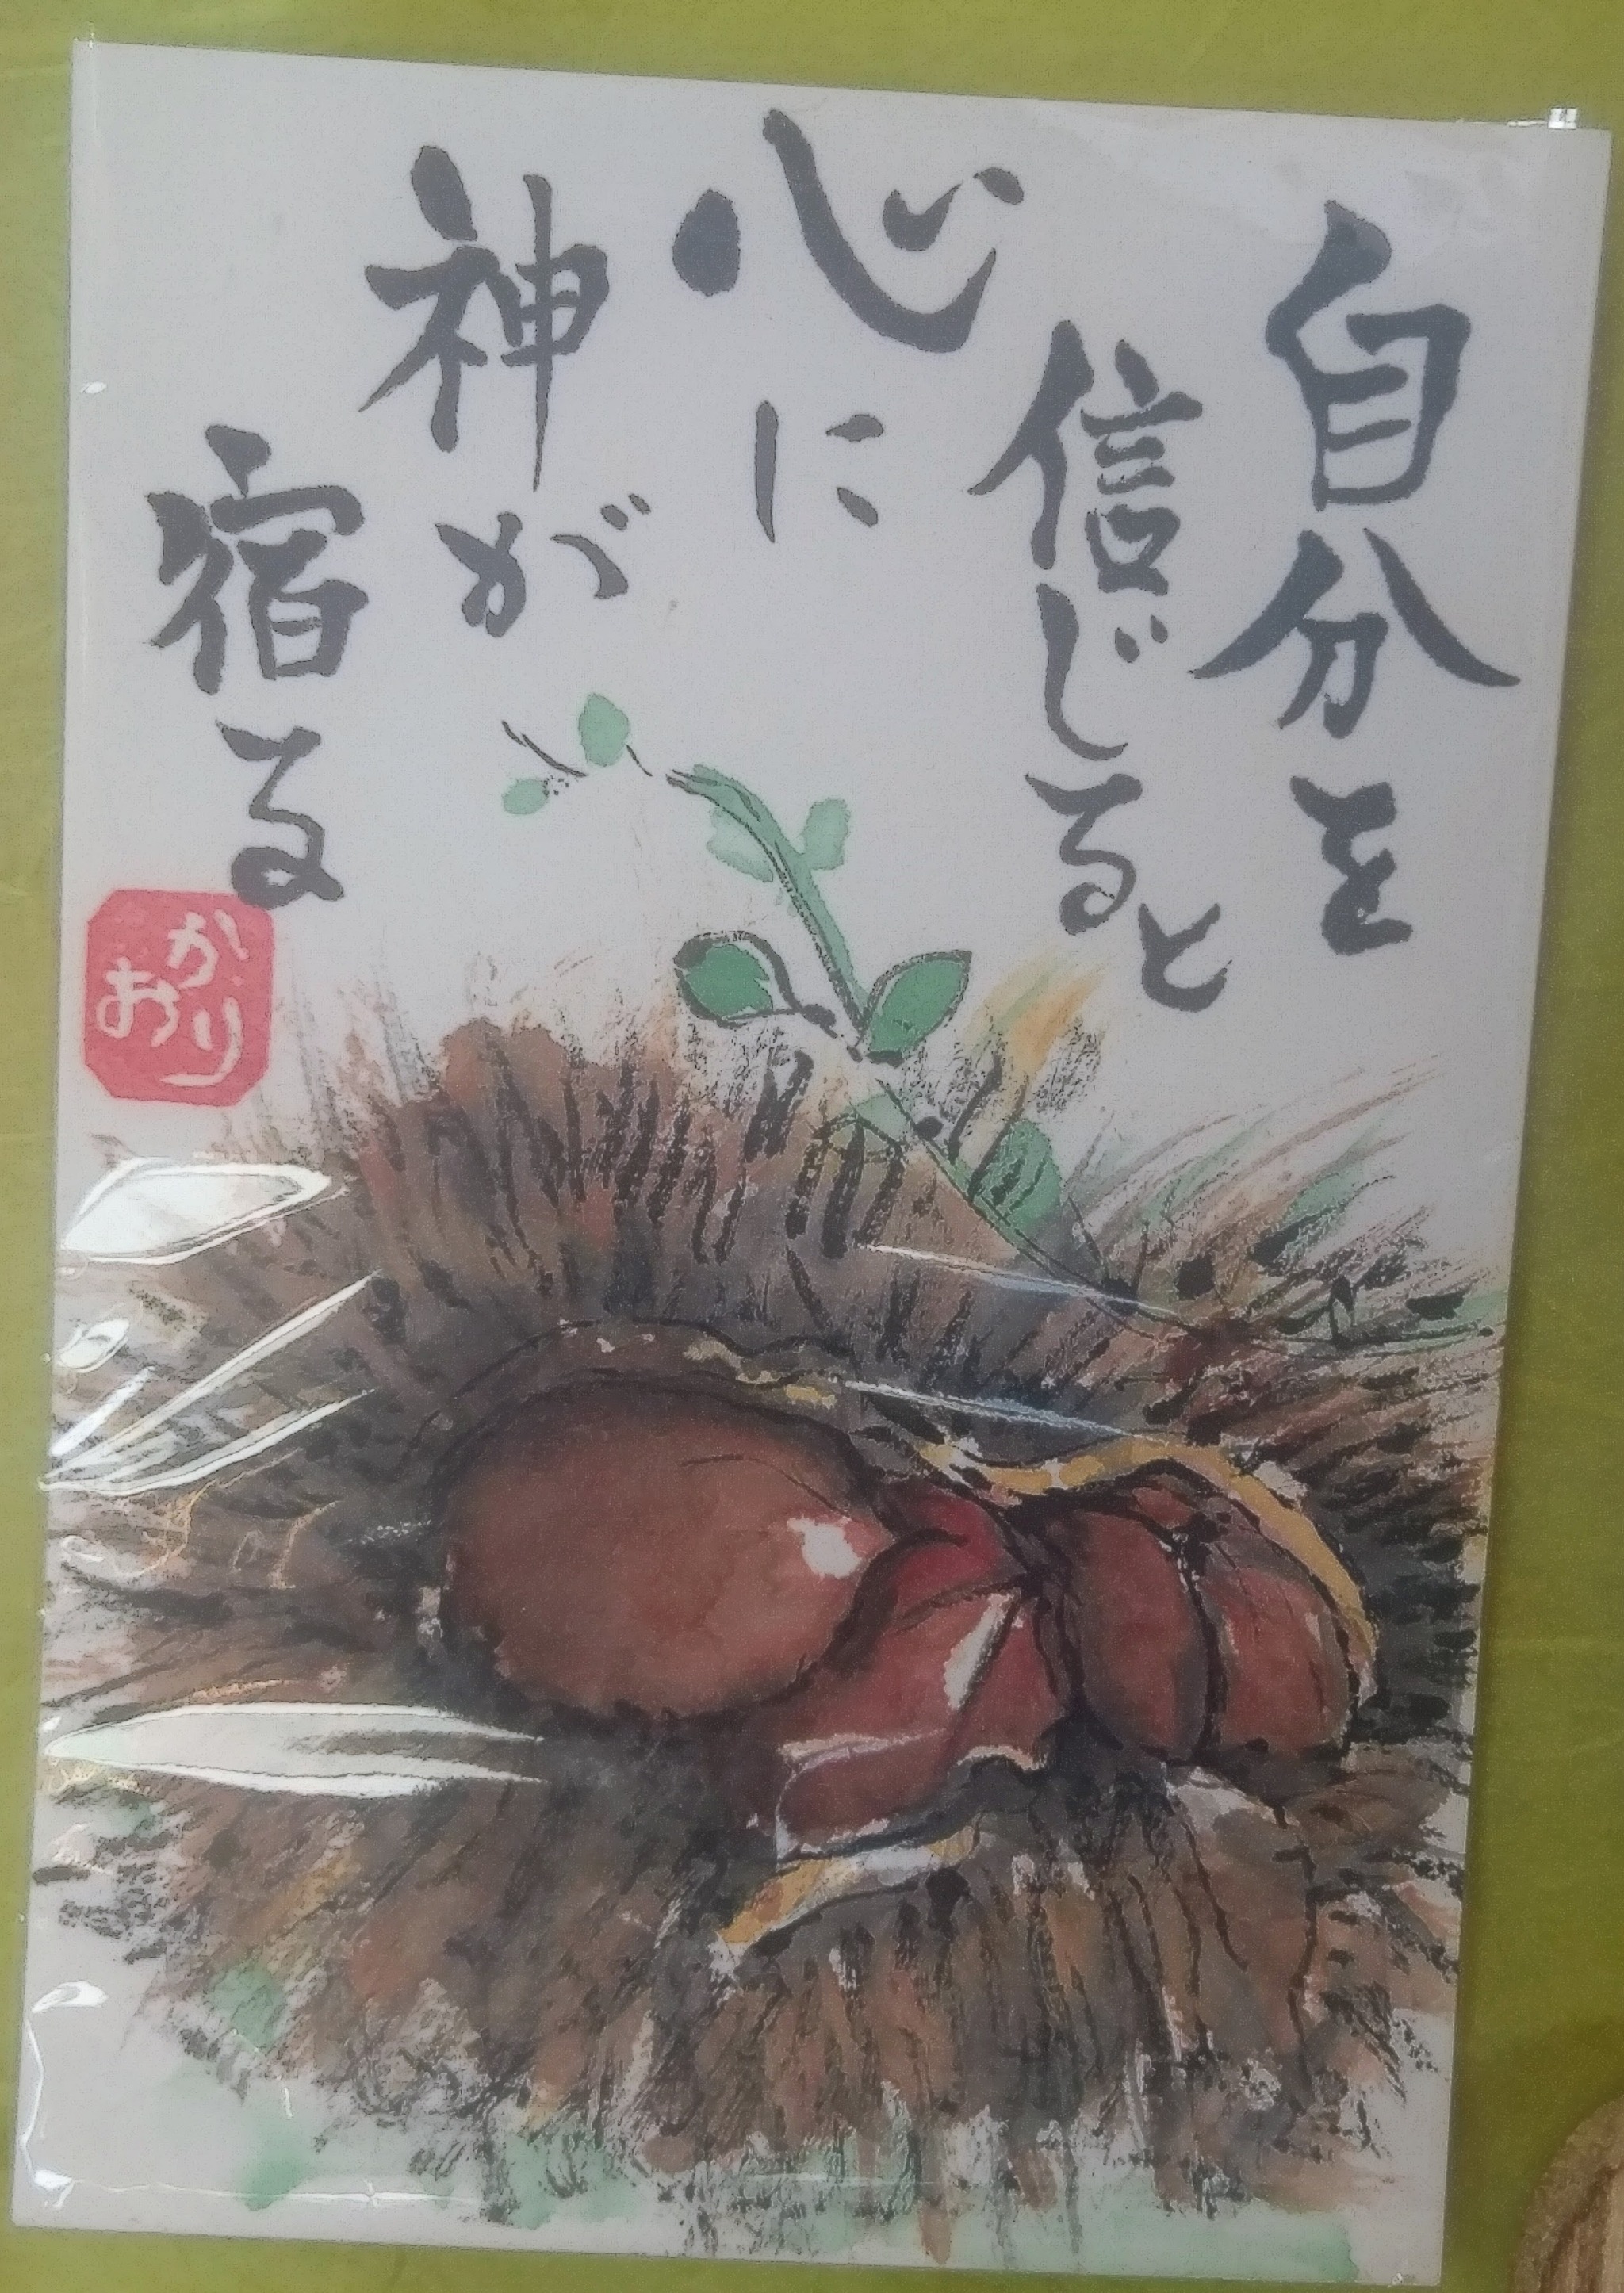 自分を
信じると
心に
神が
宿る
かおり